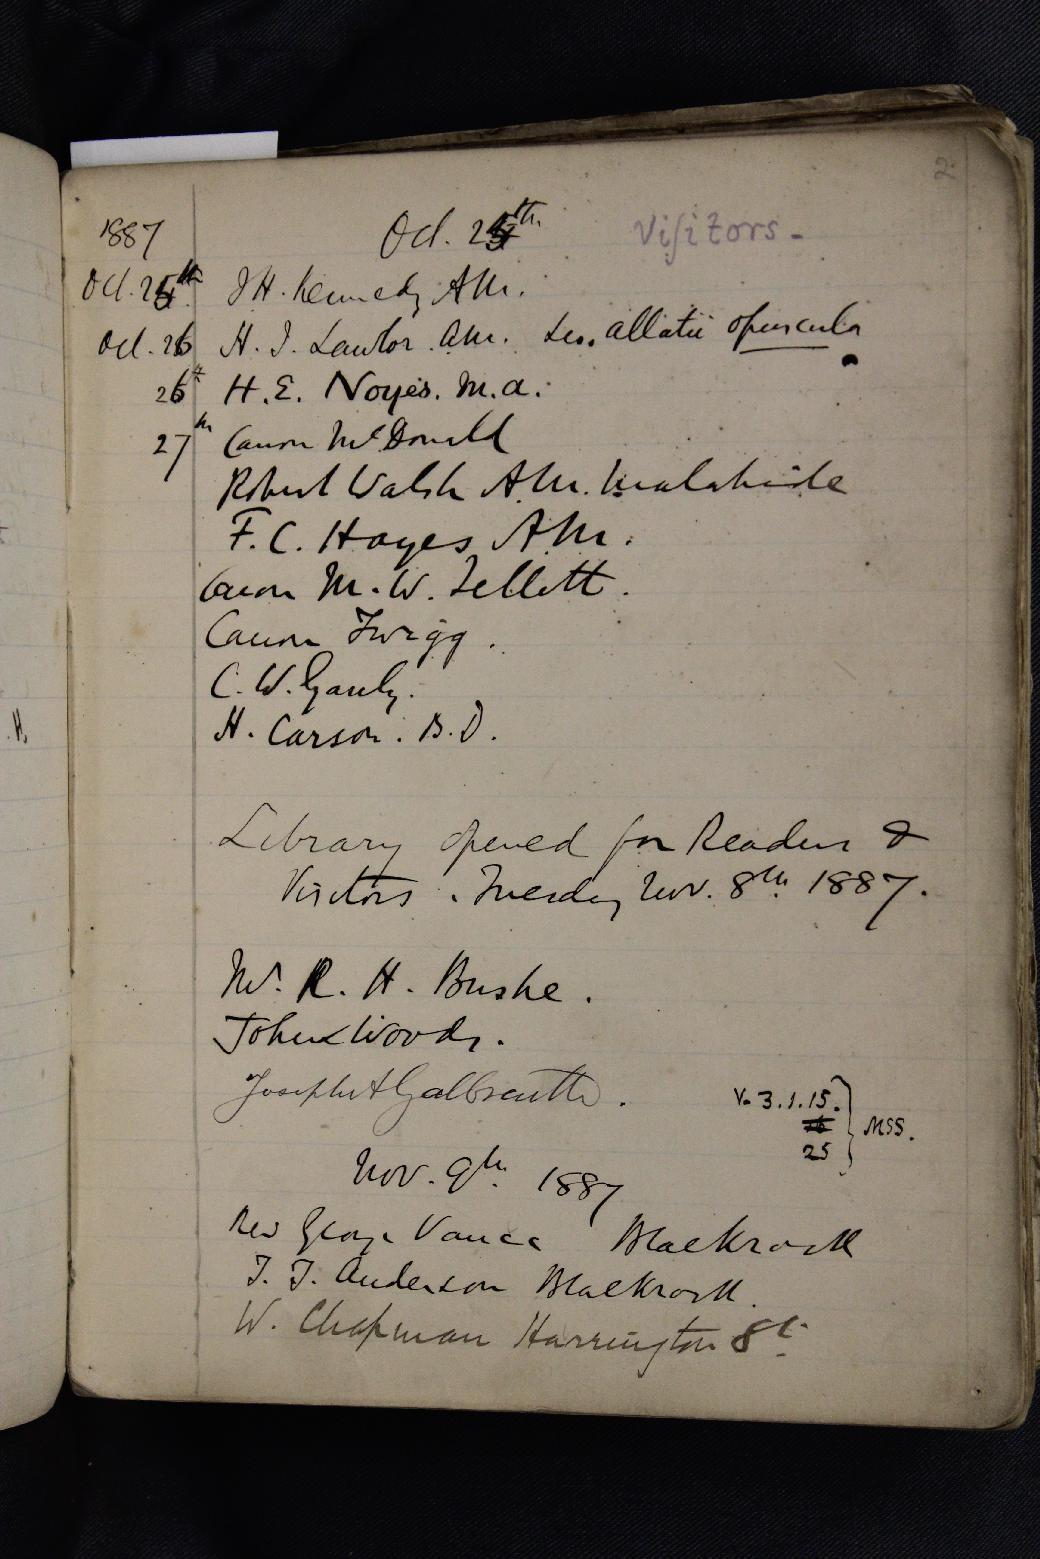 2
1887 Oct. 25th. Visitors -
Oct. 25th. J H. Kennedy A.M.
Oct. 26 H. J. Lawlor. A.M. Leo. Allatii opuscula
26th H. E. Noyes. M.A.
27th Canon McDonald
Robert Walsh A.M. Malahide
F. C. Hayes A.M.
Canon M. W. Jellett.
Canon Twigg.
C. W. Gauly.
H. Carson. B.D.
Library opened for Readers &
Visitors. Tuesday Nov. 8th. 1887.
Mr. R. H. Bushe.
John Woods.
Joseph A Galbraith.
V. 3.1.15. } MSS.
16
25
Nov. 9th. 1887
Rev George Vance Blackrock
T. T. Anderson Blackrock.
W. Chapman Harrington St.
H.